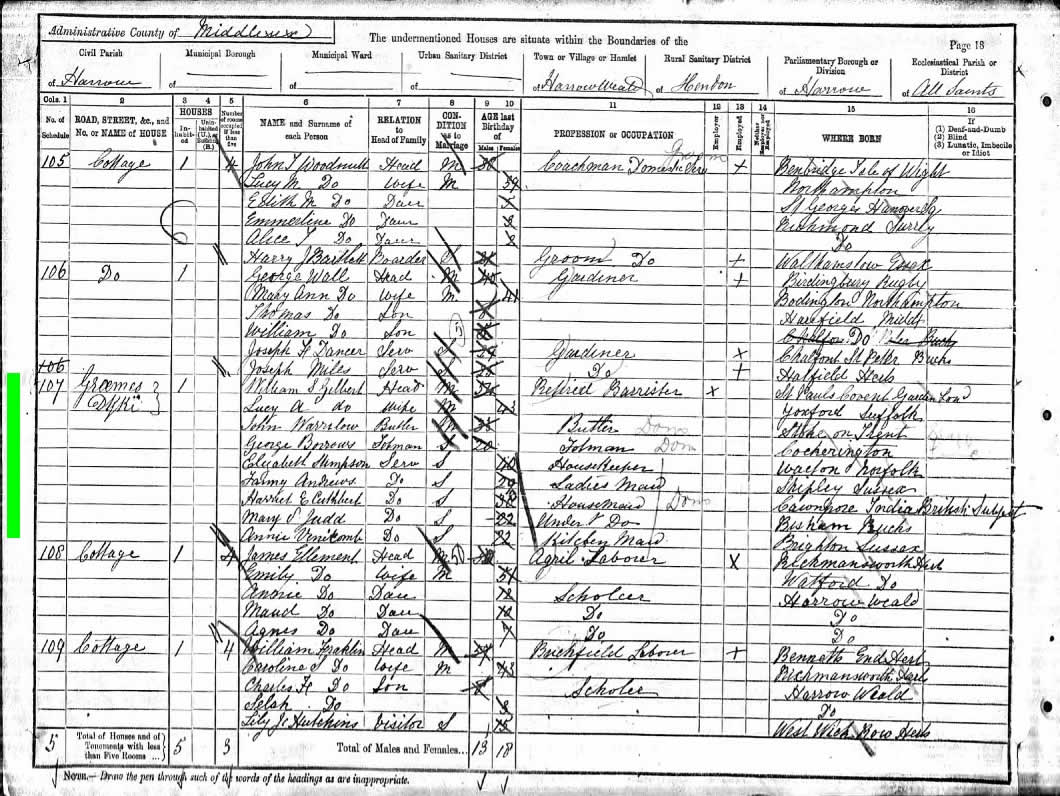 Administrative County of Middlesex
The undermentioned Houses are situate within the Boundaries of the
Page 18
Civil Parish of Harrow
Municipal Borough of
Municipal Ward of
Urban Sanitary District of
Town or Village or Hamlet of Harrow Weald
Rural Sanitary District of Hendon
Parliamentary Borough or Division of Harrow
Ecclesiastical Parish or District of All Saints
Cols. 1 2 3 4 5 6 7 8 9 10 11 12 13 14 15 16
No. of Schedule
ROAD, STREET, &c., and No. or NAME of HOUSE
HOUSES
Inhabited
Uninhabited (U.) or Building (B.)
Number of rooms occupied if less than five
NAME and Surname of each Person
RELATION to Head of Family
CONDITION as to Marriage
AGE last Birthday of
Males Females
PROFESSION or OCCUPATION
Employer
Employed
Neither Employer nor Employed
WHERE BORN
If (1) Deaf-and-Dumb (2) Blind (3) Lunatic, Imbecile or Idiot
105 Cottage 1 4 John Head M Coachman Domestic Serv + Benbridge Isle of Wight
Lucy M. Do Wife M Northampton
Edith M Do Daur St Georges Hanover Sq
Emmerline Do Daur Richmond Surry
Alice Do Daur Do
Harry J Bartlett Boarder S Groom Do + Walthamstow Essex
106 Do 1 George Wall Head M Gardiner + Birdingbury Rugby
Mary Ann Do Wife M 41 Bodington Northampton
Thomas Do Son Harefield Middx
William Do Son
Joseph H Dancer Serv S Gardiner × Chalfont St Peter Bucks
106 Joseph Miles Serv S Do + Hatfield Herts
107 Graemes Dyke 1 William S Gilbert Head M Retired Barrister × St Pauls Covent Garden Lond
Lucy A do Wife M 43 Yoxford Suffolk
John Warrilow Butler M Butler Dom Stoke on Trent
George Borrows Fotman S 20 Fotman Dom Cockerington
Elizabeth Stimpson Serv S 40 Housekeeper Norfolk
Fanny Andrews Do S Ladies Maid Shipley Sussex
Harriet E Cuthbert Do S HouseMaid Dom Cawnpore India British Subject
Mary S Judd Do S 22 Under Do Bucks
Annie Venicomb Do S 22 Kitchen Maid Brighton Sussex
108 Cottage 1 4 James Ellement Head M 50 Agril Labourer X Rickmansworth Herts
Emily Do Wife M 51 Watford Do
Annie Do Daur 12 Scholer Harrow Weald
Maud Do Daur 10 Do Do
Agnes Do Daur 7 Do Do
109 Cottage 1 4 William Franklin Head M Brickfield Labourer + Bennetts End Herts
Caroline Do Wife M 43 Rickmansworth Herts
Charles H Do Son Scholer Harrow Weald
Selah Do 3 Do
Lily J. Hutchins Visitor S 15 West Wick Row Herts
5 Total of Houses and of Tenements with less than Five Rooms ... 5 3 Total of Males and Females... 13 18
NOTE.— Draw the pen through such of the words of the headings as are inappropriate.